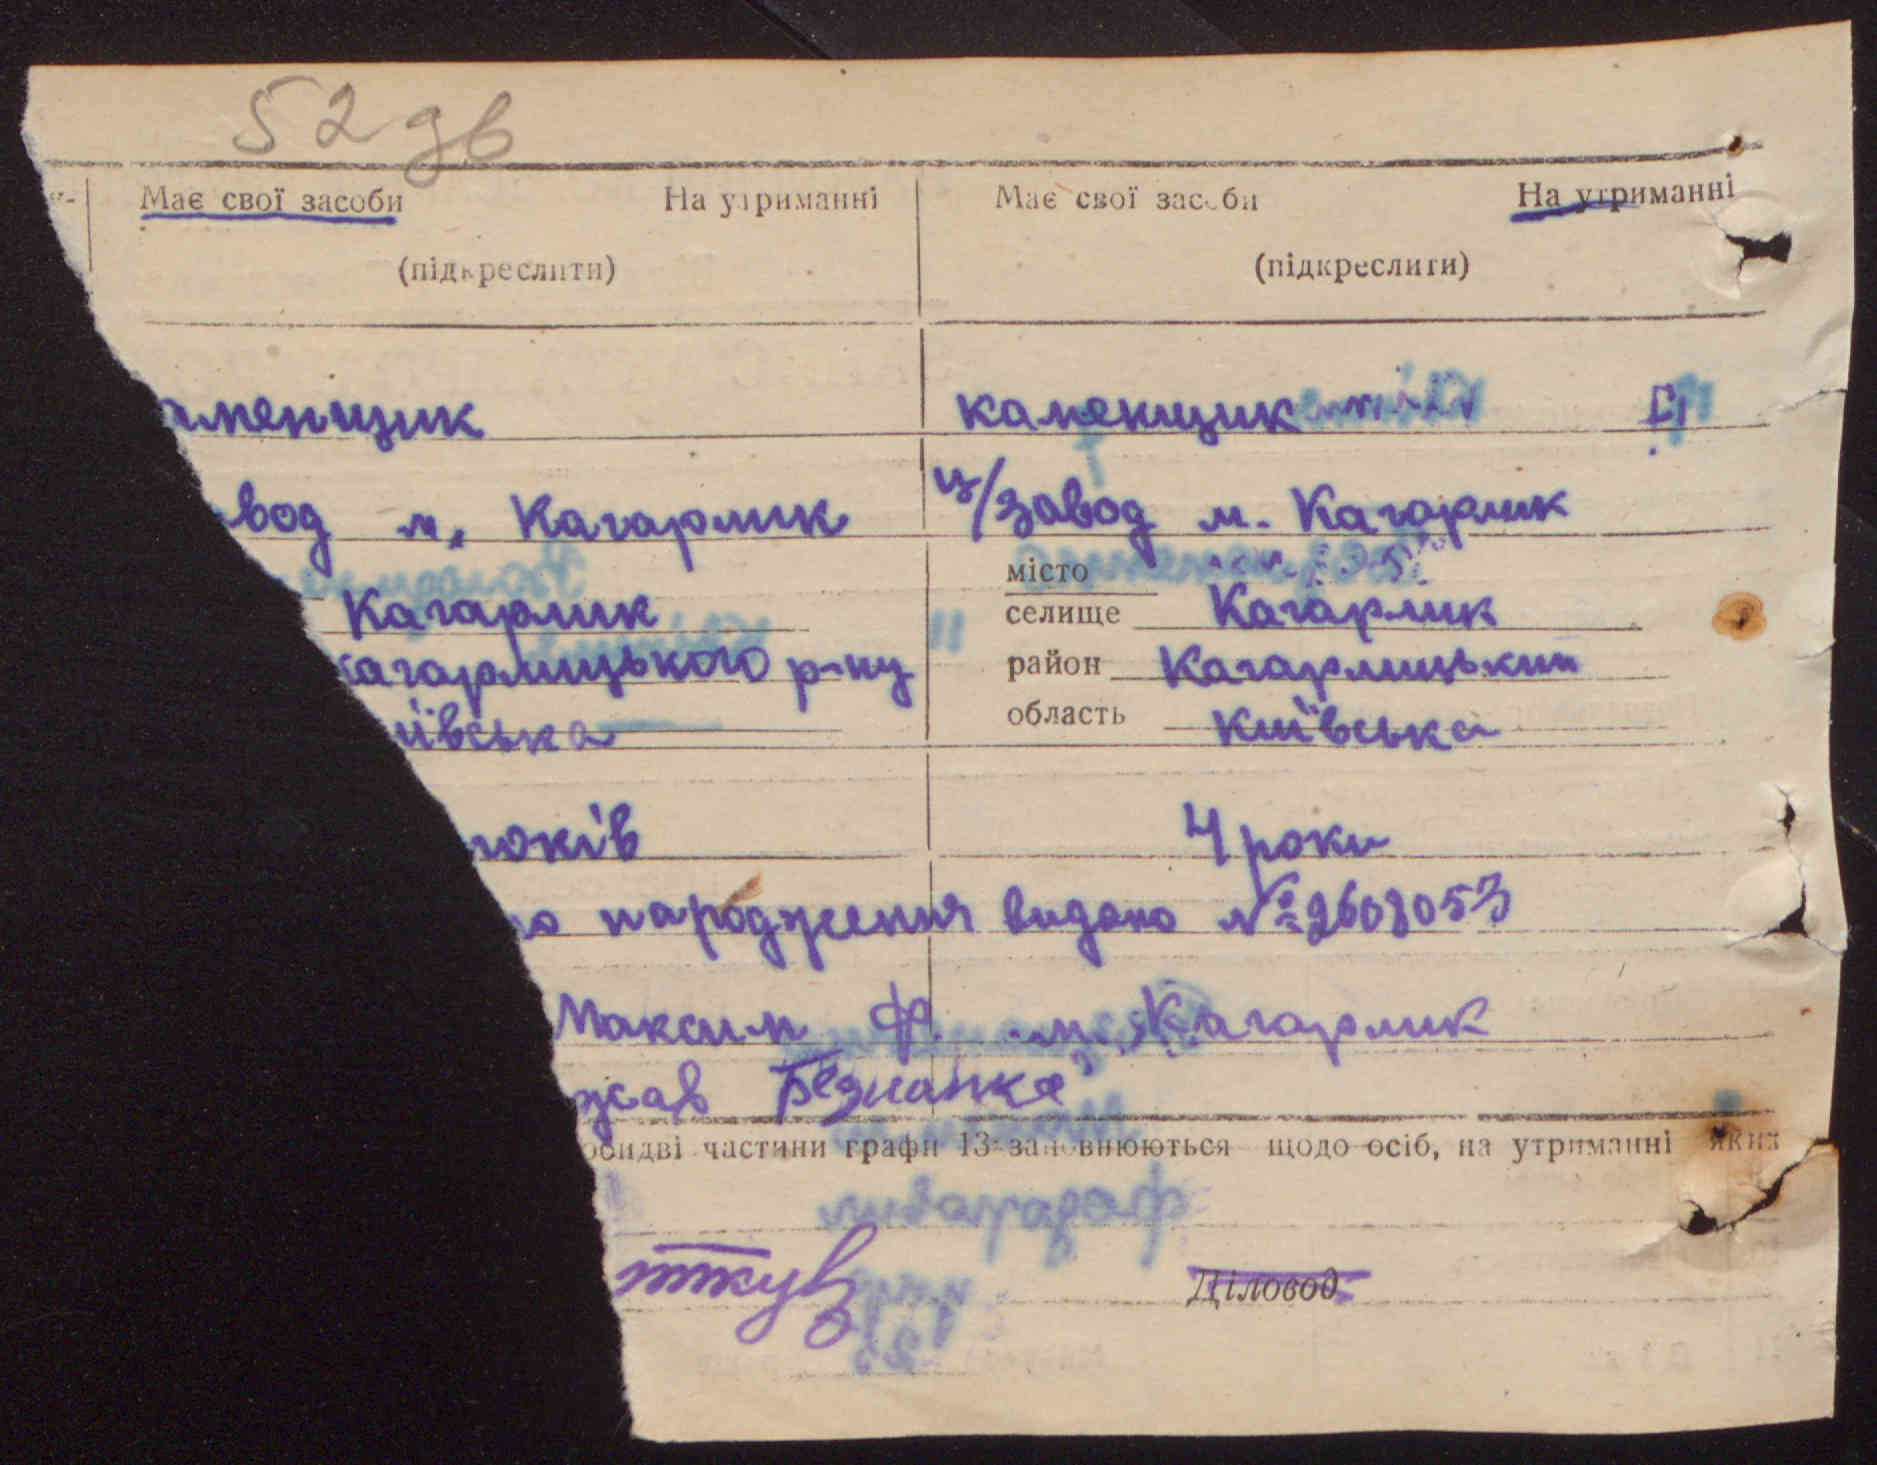 52 дв
Має свої засоби На утриманні Має свої засоби На утриманні
(підкреслити) (підкреслити)
аменщик каменщик
вод м. Кагарлик ц/завод м. Кагарлик
місто
Кагарлик селище Кагарлик
кагарлицького р-ну район Кагарлицький
иївська область Київська
років 4 роки
народження видано № 2608053
Максим Ф. м. Кагарлик
обидві частини графи 13 заповнюються щодо осіб, на утриманні яких
Діловод